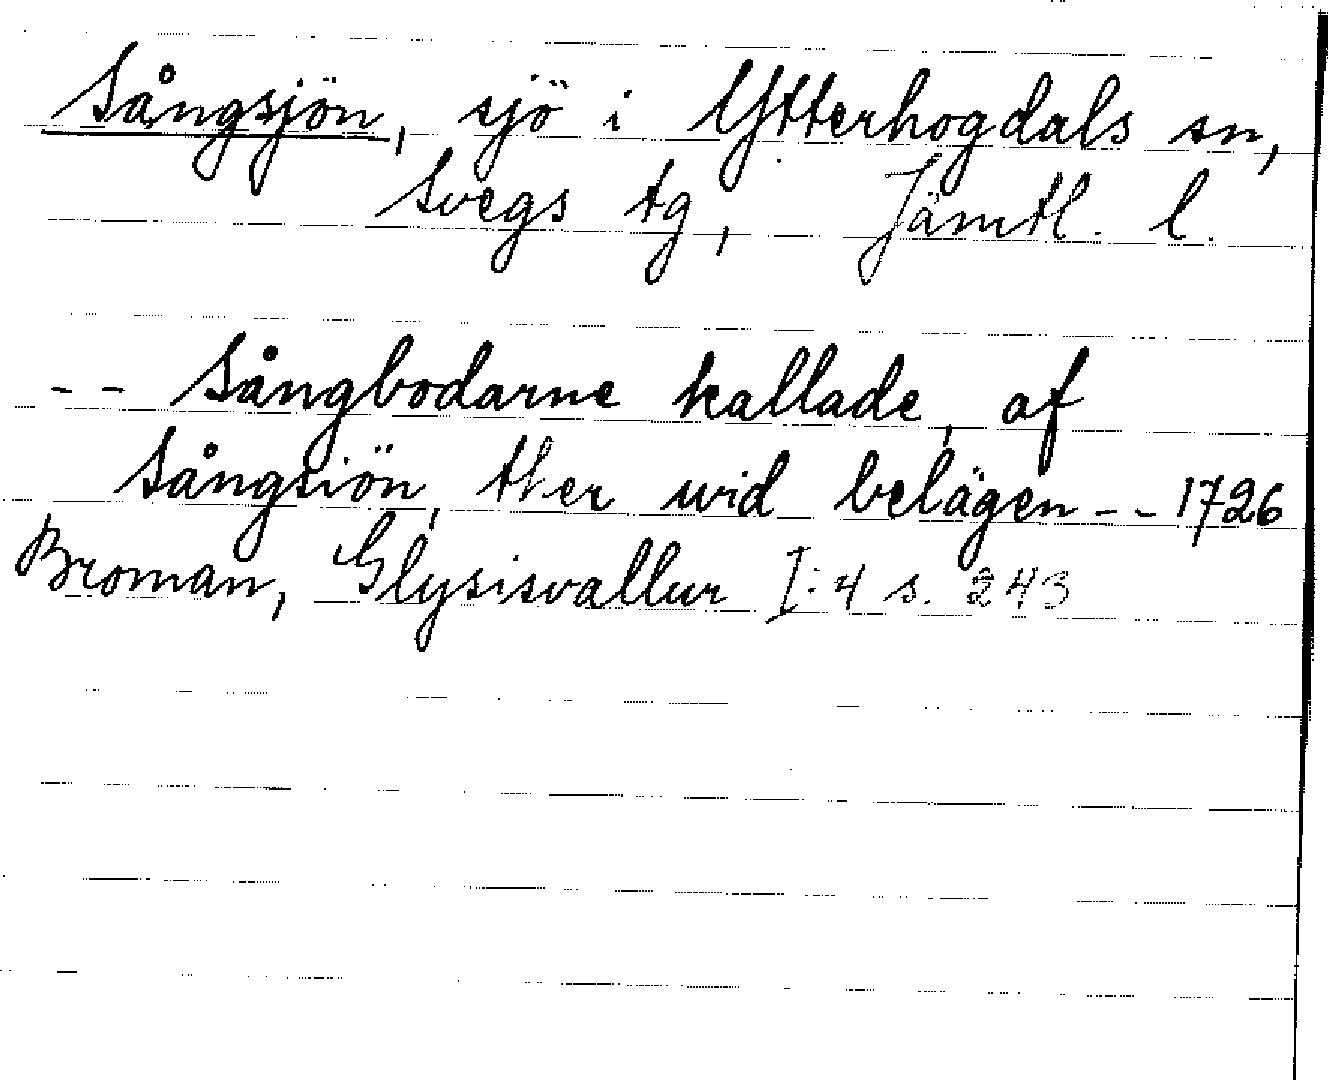 Sångsjön, sjö i Ytterhogdals sn,
Svegs tg, Jämtl. l.
- - Sångbodarne kallade, af
Sångsiön, ther wid belägen - - 1726
Broman, Glysisvallur I:4 s. 243